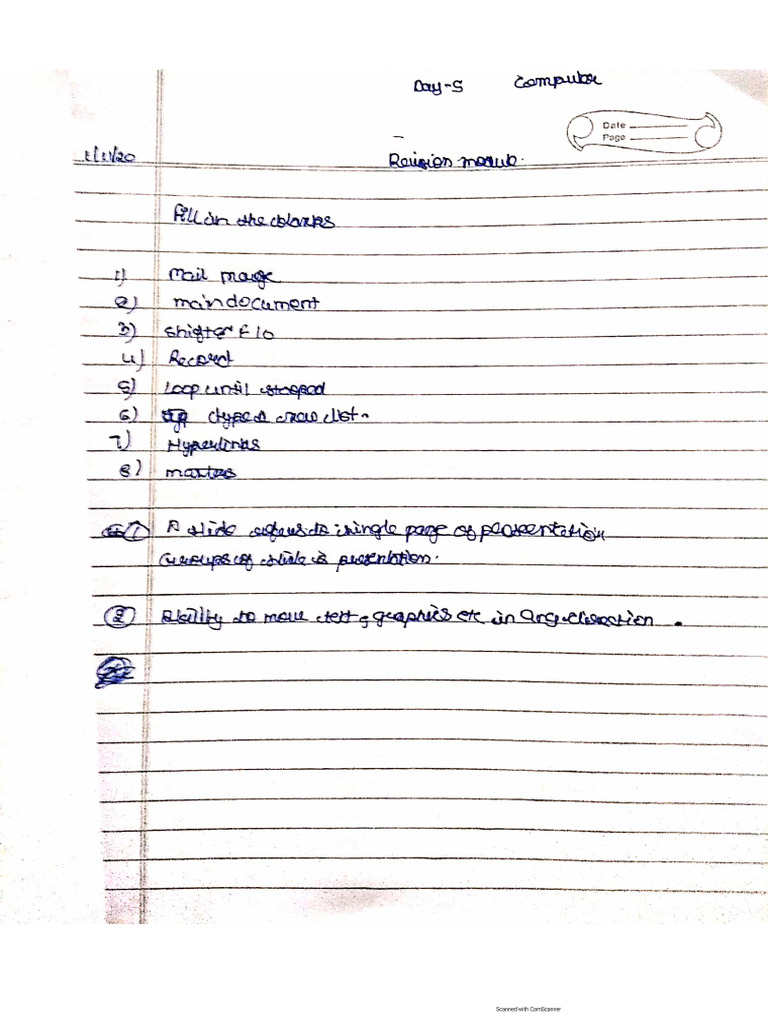 Day-5 Computer
Date
Page
1/11/20 Revision
Fill in the blanks
1) Mail marge
2) main document
3) Shift + F10
4) Record
5) Loop until stopped
6) type a new list.
7) Hyperlinks
8) masters
1 A slide refers to single page of presentation
Groups of slide is presentation.
2 Ability to move text, graphics etc in any direction.
Scanned with CamScanner